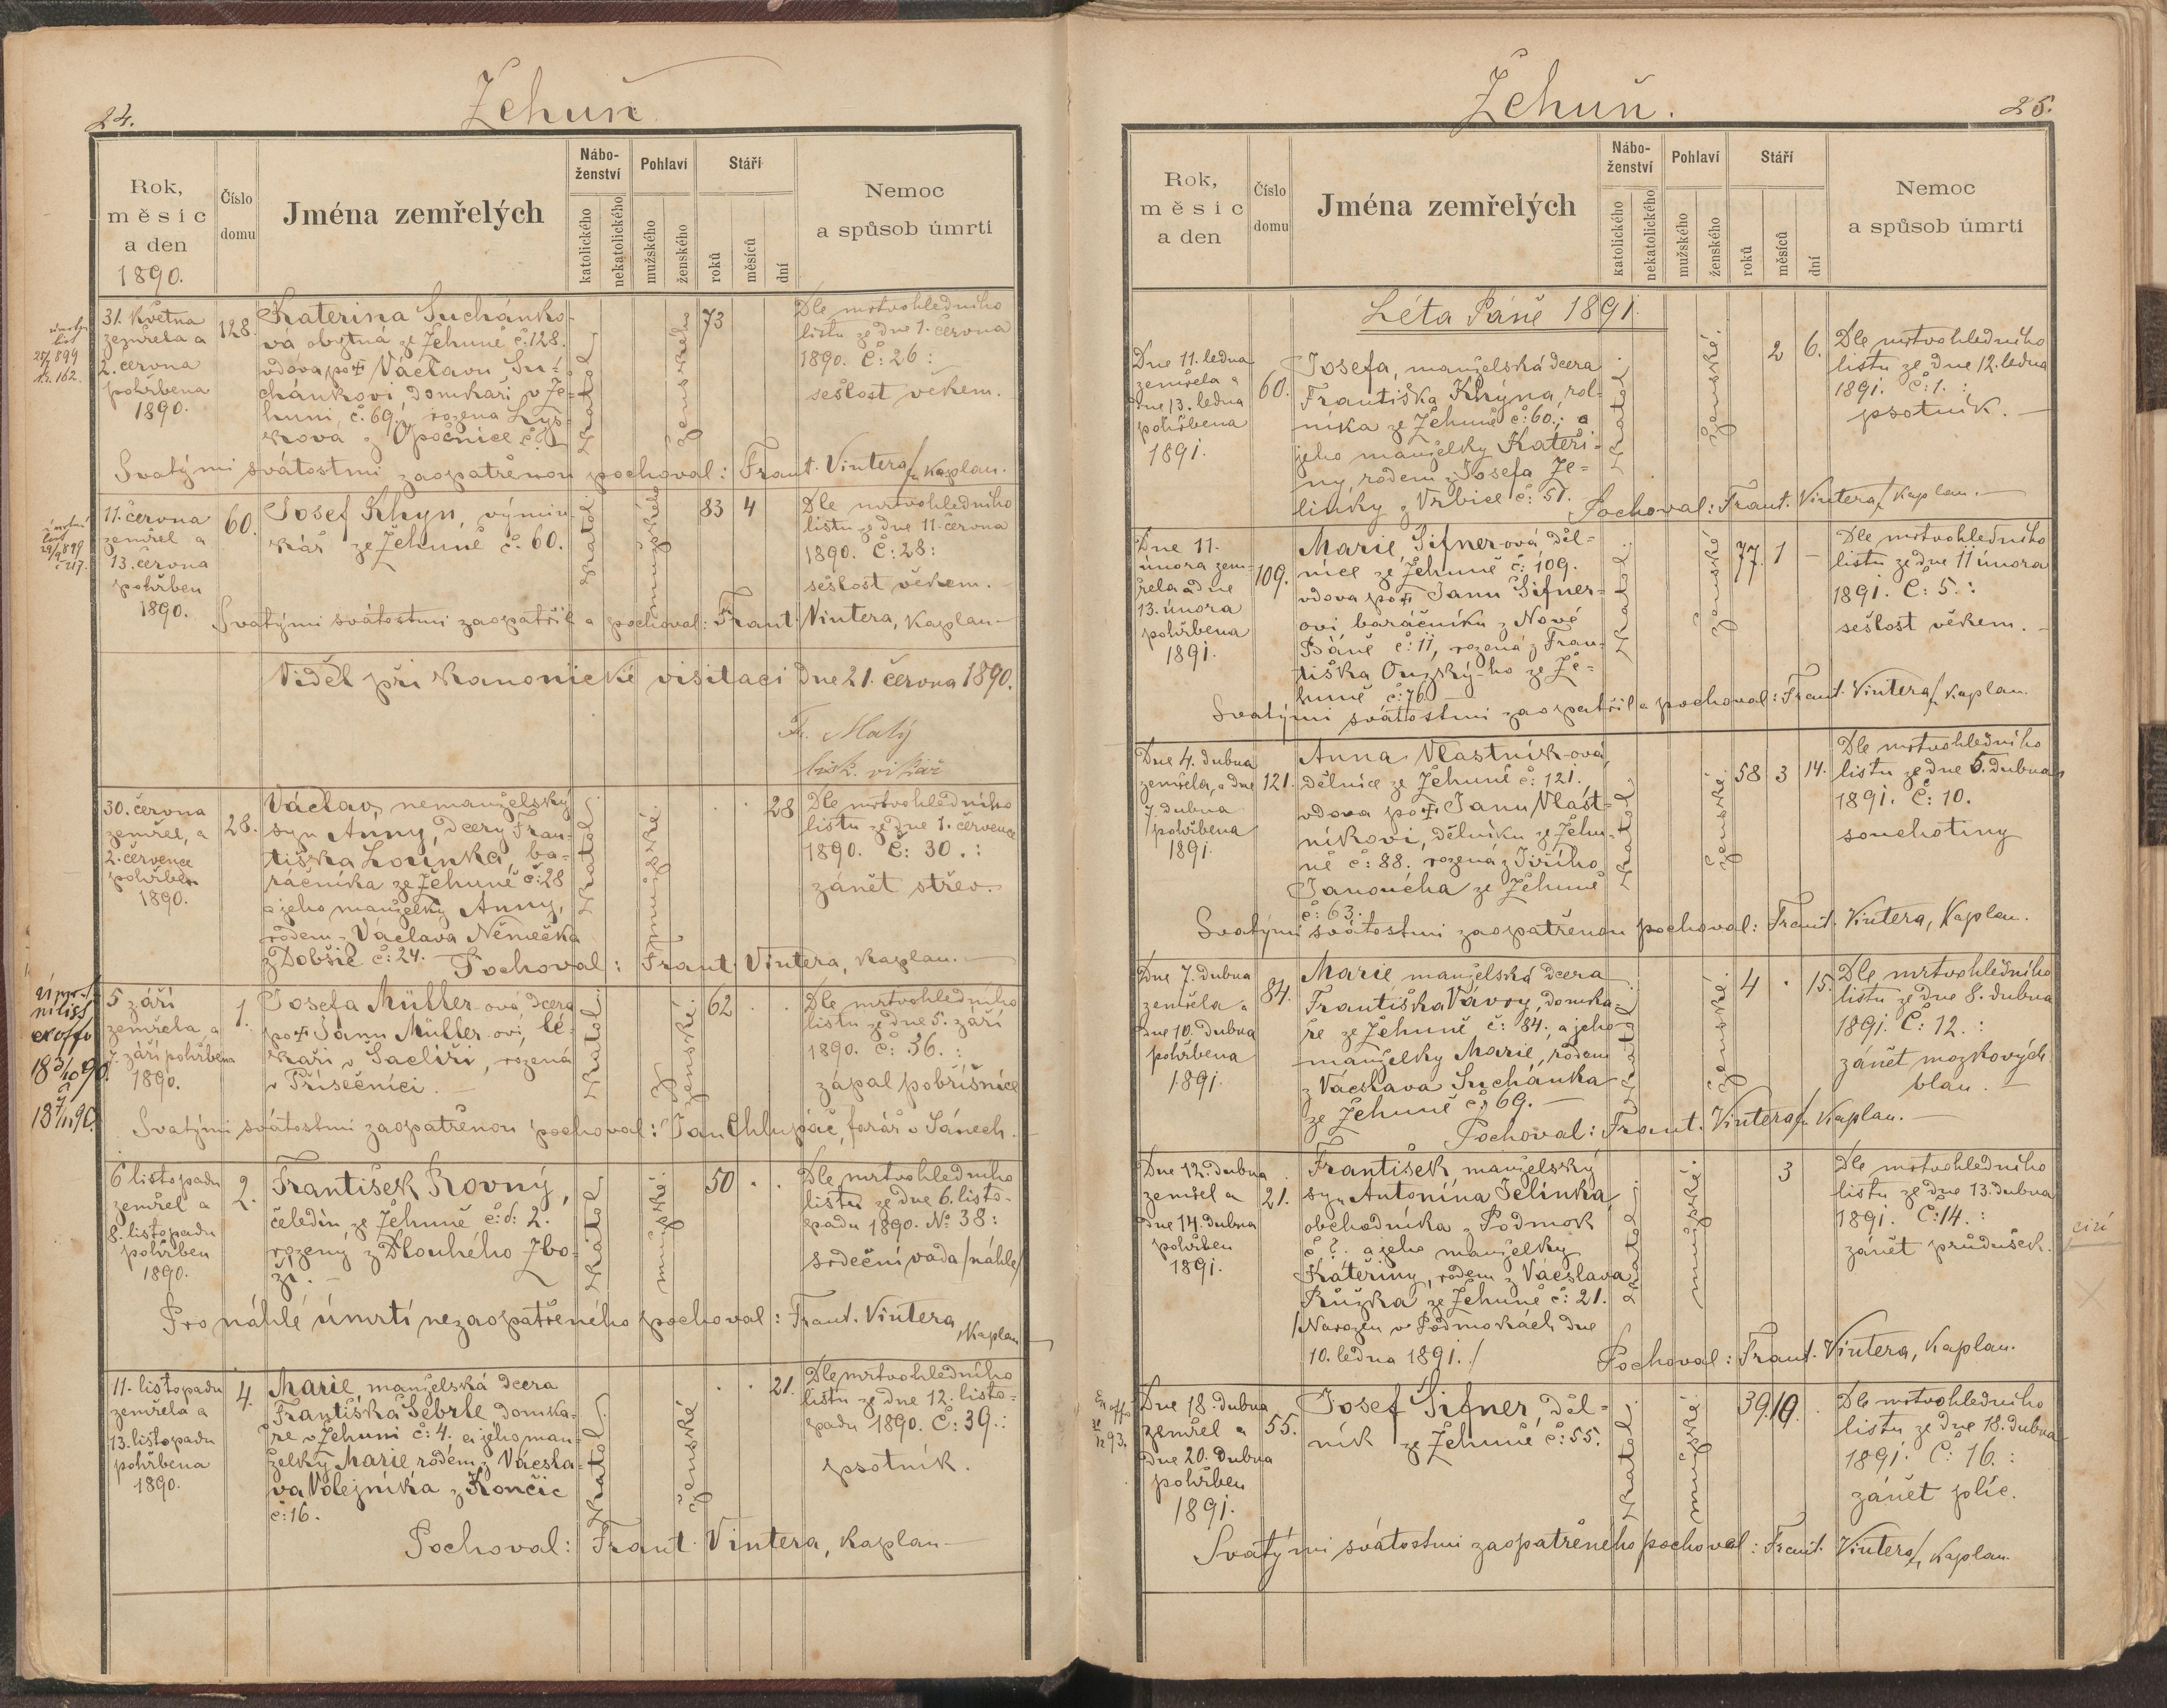 24.
Žehuň
Rok,
měsíc
a den
1890.
Číslo
domu
Jména zemřelých
Nábo-
ženství
katolického
nekatolického
Pohlaví
mužského
ženského
Stáří
roků
měsíců
dní
Nemoc
a spůsob úmrtí
31. května
zemřela a
2. června
pohřbena
1890.
128.
Kateřina Suchánko-
vá obytná ze Žehuně č:128.
vdova po † Václavu Su-
chánkovi, domkáři v Že-
huni č:69., rozená Lys-
ková z Opočnice č:
katol.
ženského
73
Dle mrtvohledního
listu ze dne 1. června
1890. Č: 26:
sešlost věkem.
Svatými svátostmi zaopatřenou pochoval: Frant. Vintera, Kaplan.
11. června
zemřel a
13. června
pohřben
1890.
60.
Josef Khyn, výmin-
kář ze Žehuně č. 60.
katol.
mužského
83 4
Dle mrtvohledního
listu ze dne 11. června
1890. Č: 28:
sešlost věkem.
Svatými svátostmi zaopatřil a pochoval: Frant. Vintera, Kaplan
Viděl při kanonické visitaci dne 21. června 1890.
Fr. Malý
bisk. vikář
30. června
zemřel, a
2. července
pohřben
1890.
28.
Václav, nemanželský
syn Anny, dcery Fran-
tiška Lounka, ba-
ráčníka ze Žehuně č:28
a jeho manželky Anny,
rodem z Václava Němečka
z Dobšic č:24.
katol.
mužské.
28
Dle mrtvohledního
listu ze dne 1. července
1890. Č: 30.:
zánět střev.
Pochoval: Frant. Vintera, Kaplan.
úmr-
ní list
ex offo
18 3/10 90.
a
18 7/11 90.
5 září
zemřela, a
7. září pohřbena
1890.
1.
Josefa Müller-ová dcera
po † Janu Müller-ovi, lé-
kaři v Žacléři, rozená
v Přísečnici.
katol.
ženské.
62
Dle mrtvohledního
listu ze dne 5. září
1890. Č: 36.:
zápal pobřišnice
Svatými svátostmi zaopatřenou pochoval: Jan Chlupáč, farář v Sánech.
6 listopadu
zemřel a
8. listopadu
pohřben
1890.
2.
František Rovný,
čeledín ze Žehuně č:d: 2.
rozený z Dlouhého Zbo-
ží.
katol.
mužské.
50
Dle mrtvohledního
listu ze dne 6. listo-
padu 1890. No: 38:
srdeční vada /náhle/
Pro náhlé úmrtí nezaopatřeného pochoval: Frant. Vintera, Kaplan
11. listopadu
zemřela a
13. listopadu
pohřbena
1890.
4.
Marie, manželská dcera
Františka Šebrle domká-
ře v Žehuni č:4. a jeho man-
želky Marie rodem z Václa-
va Volejníka z Končic
č:16.
katol.
ženské
21.
Dle mrtvohledního
listu ze dne 12. listo-
padu 1890. Č: 39.:
psotník.
Pochoval: Frant. Vintera, Kaplan
Žehuň.
25.
Rok,
měsíc
a den
Číslo
domu
Jména zemřelých
Nábo-
ženství
katolického
nekatolického
Pohlaví
mužského
ženského
Stáří
roků
měsíců
dní
Nemoc
a spůsob úmrtí
Léta Páně 1891
Dne 11. ledna
zemřela a
dne 13. ledna
pohřbena
1891.
60.
Josefa, manželská dcera
Františka Khýna, rol-
níka ze Žehuně č:60.; a
jeho manželky Kateři-
ny, rodem z Josefa Je-
línky z Vrbice č: 51.
katol.
ženské.
2 6.
Dle mrtvohledního
listu ze dne 12. ledna
1891. Č:1.:
psotník.
Pochoval: Frant. Vintera, Kaplan.
Dne 11.
února zem-
řela a dne
13. února
pohřbena
1891.
109.
Marie, Šifner-ová děl-
nice ze Žehuně č: 109.
vdova po † Janu Šifner-
ovi baráčníku z Nové
Báně č:11, rozená z Fran-
tiška Ouzký-ho ze Že-
huně č:76.
katol.
ženské
77. 1 –
Dle mrtvohledního
listu ze dne 11 února
1891. Č: 5.:
sešlost věkem.
Svatými svátostmi zaopatřil a pochoval: Frant. Vintera, Kaplan.
Dne 4. dubna
zemřela, a dne
7. dubna
pohřbena
1891.
121.
Anna Vlastník-ová,
dělnice ze Žehuně č: 121.,
vdova po † Janu Vlast-
níkovi, dělníku ze Žehu-
ně č:88. rozená z Jiřího
Janoucha ze Žehuně
č:63.
katol.
ženské.
58 3 14.
Dle mrtvohledního
listu ze dne 5. dubna
1891. Č: 10.
souchotiny
Svatými svátostmi zaopatřenou pochoval: Frant. Vintera, Kaplan.
Dne 7. dubna
zemřela a
dne 10. dubna
pohřbena
1891.
84.
Marie manželská dcera
Františka Vávry, domka-
ře ze Žehuně č: 84., a jeho
manželky Marie, rodem
z Václava Suchánka
ze Žehuně č: 69.
katol.
ženské.
4 . 15.
Dle mrtvohledního
listu ze dne 8. dubna
1891. Č: 12.:
zánět mozkových
blan.
Pochoval: Frant. Vintera, Kaplan.
Dne 12. dubna
zemřel a
dne 14. dubna
pohřben
1891.
21.
František, manželský
syn Antonína Jelínka,
obchodníka z Podmok
č ?. a jeho manželky
Kateřiny, rodem z Václava
Růžka ze Žehuně č: 21.
/Narozen v Podmokách dne
10. ledna 1891./
katol.
mužské.
3
Dle mrtvohledního
listu ze dne 13. dubna
1891. Č:14.:
zánět průdušek.
cizí
Pochoval: Frant. Vintera, Kaplan.
Dne 18. dubna
zemřel a
dne 20. dubna
pohřben
1891.
55.
Josef Šifner, děl-
ník ze Žehuně č:55.
katol.
mužské.
39. 10.
Dle mrtvohledního
listu ze dne 18. dubna
1891. Č: 16.:
zánět plic.
Svatými svátostmi zaopatřeného pochoval: Frant. Vintera, Kaplan.